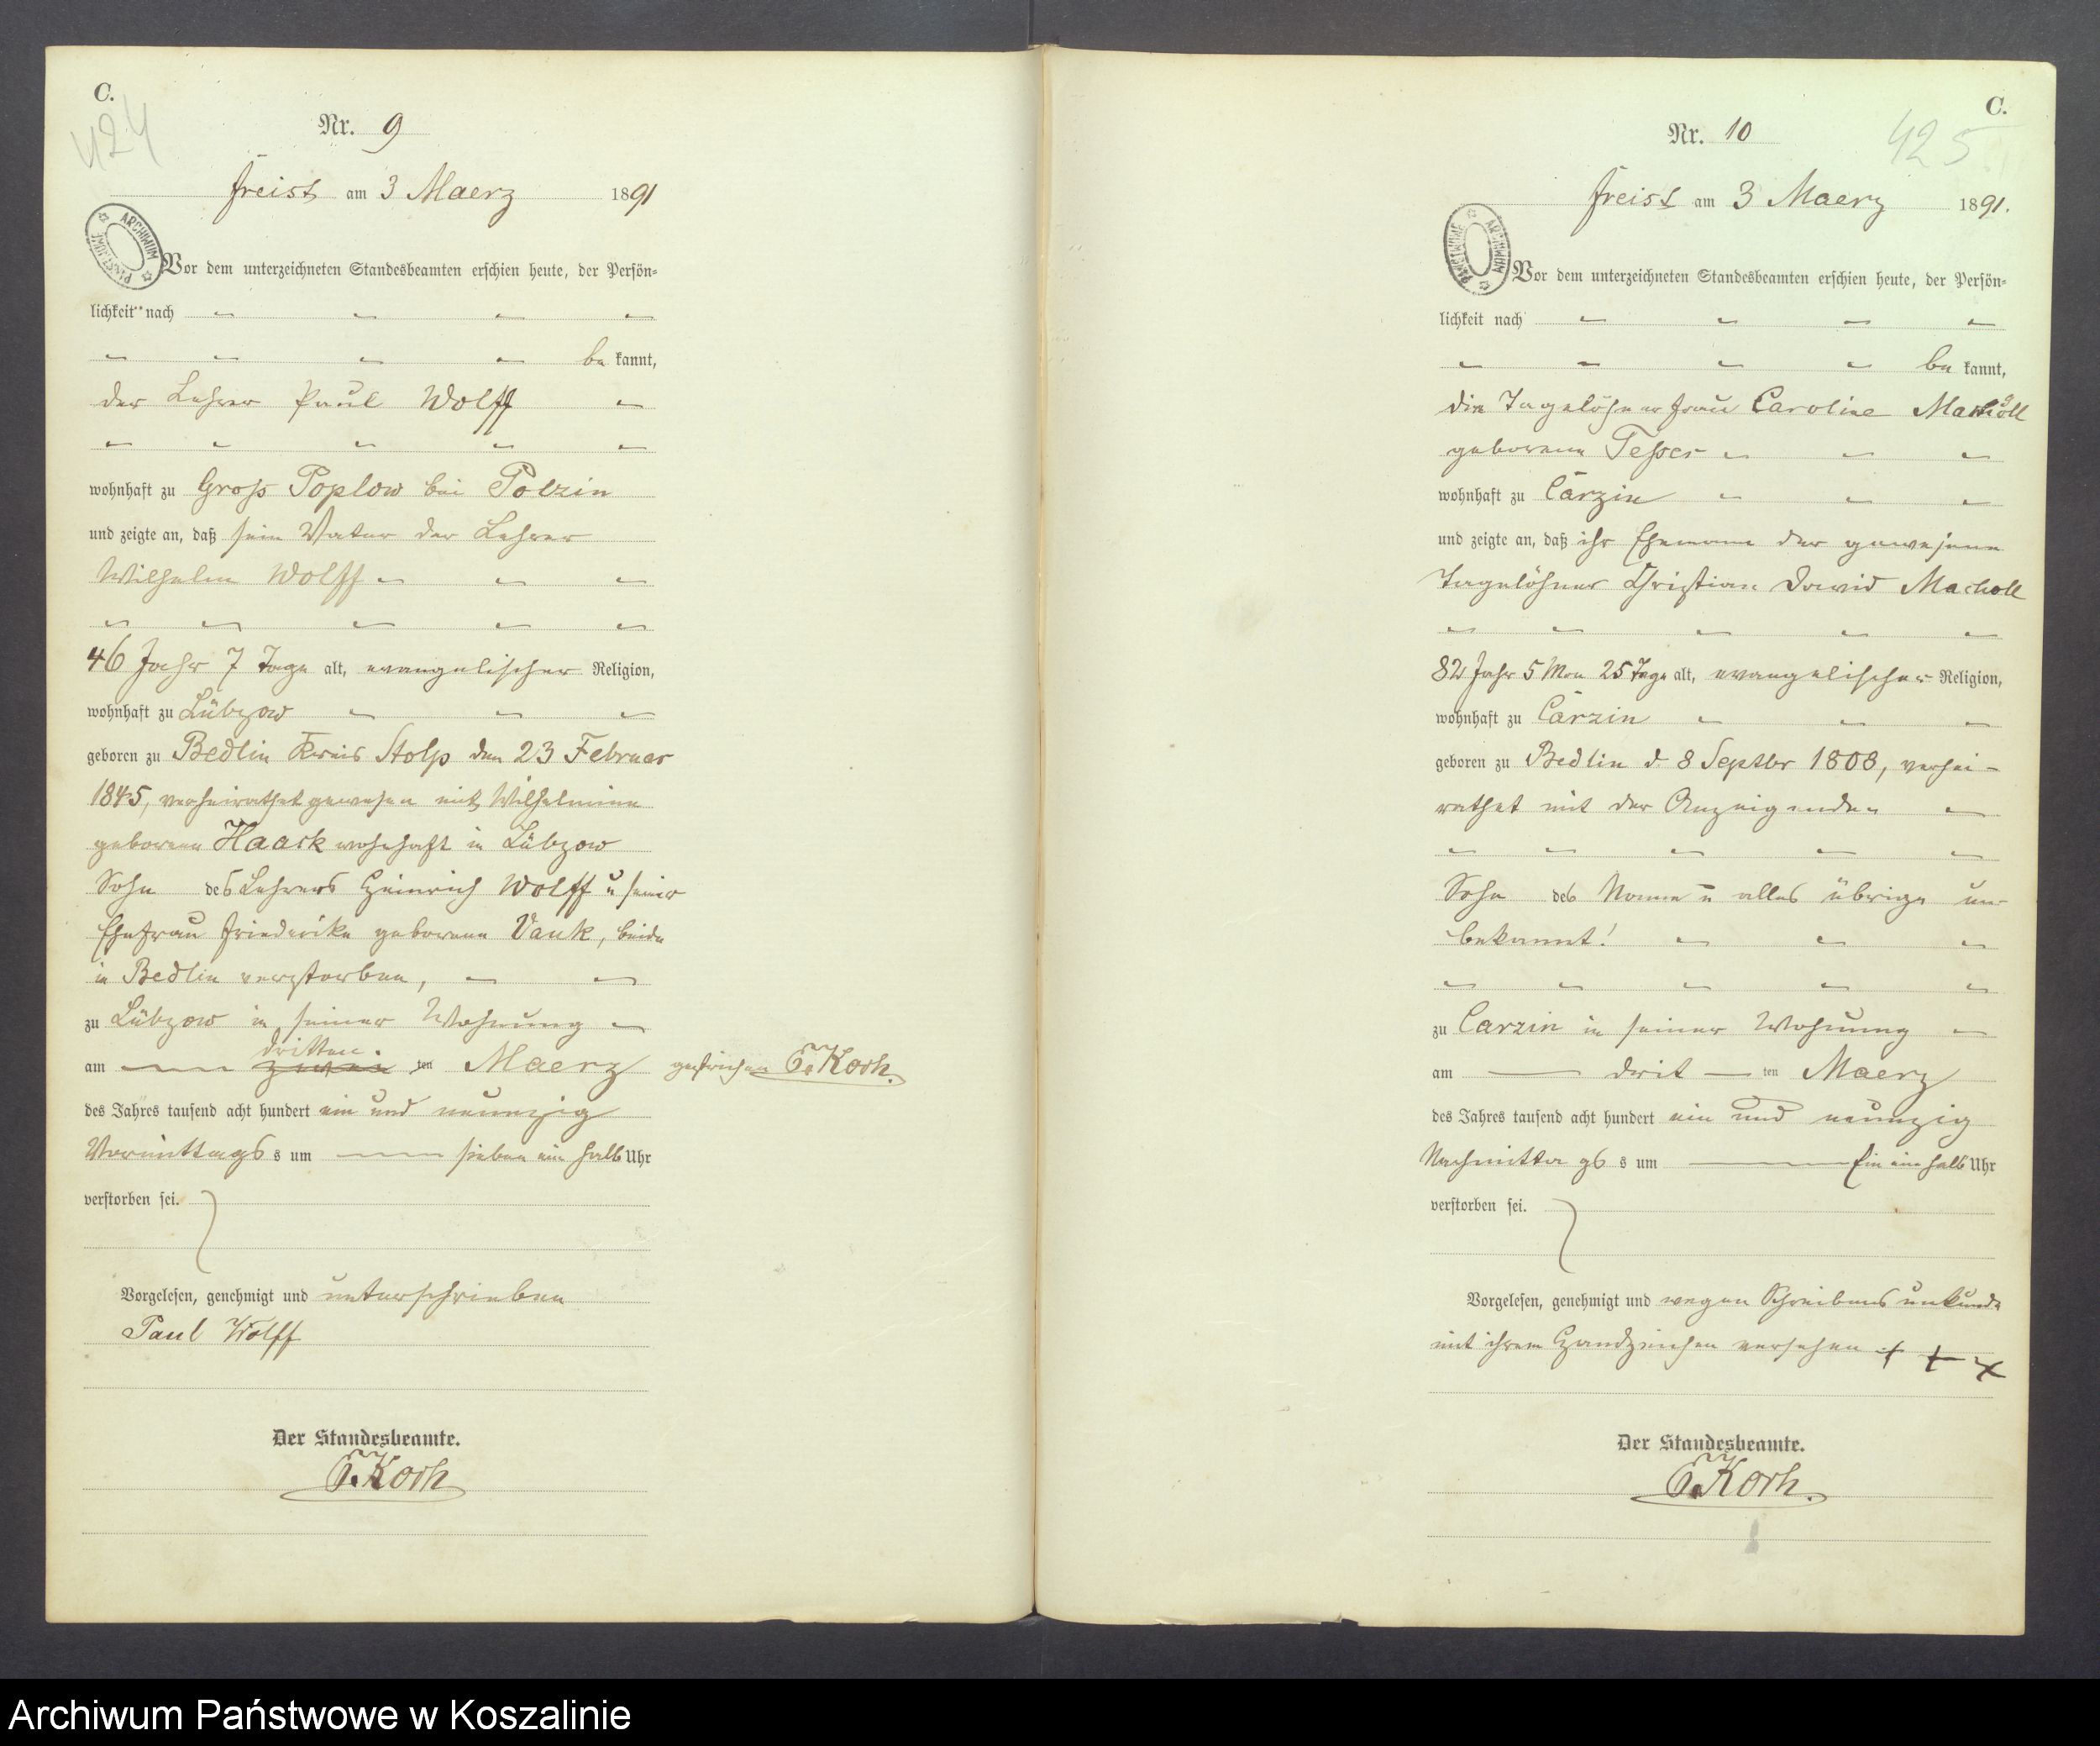 C.
424
Nr. 9
Freist am 3 Maerz 1891
ARCHIWUM PAŃSTWOWE
Vor dem unterzeichneten Standesbeamten erschien heute, der Persön-
lichkeit nach
be kannt,
der Lehrer Paul Wolff
wohnhaft zu Gross Poplow bei Polzin
und zeigte an, daß sein Vater der Lehrer
Wilhelm Wolff
46 Jahr 7 Tage alt, evangelischer Religion,
wohnhaft zu Lübzow
geboren zu Bedlin Kreis Stolp den 23 Februar
1845, verheirathet gewesen mit Wilhelmine
geborene Haack wohnhaft in Lübzow
Sohn des Lehrers Heinrich Wolff u seiner
Ehefrau Friederike geborene Vauk, beide
in Bedlin verstorben,
zu Lübzow in seiner Wohnung
dritten
am zwei ten Maerz gestrichen E. Koch.
des Jahres tausend acht hundert ein und neunzig
Vormittags s um sieben ein halb Uhr
verstorben sei.
Vorgelesen, genehmigt und unterschrieben
Paul Wolff
Der Standesbeamte.
E. Koch
C.
425
Nr. 10
Freist am 3 Maerz 1891.
ARCHIWUM PAŃSTWOWE
Vor dem unterzeichneten Standesbeamten erschien heute, der Persön-
lichkeit nach
be kannt,
die Tagelöhnerfrau Caroline Macholl
geborene Tesser
wohnhaft zu Carzin
und zeigte an, daß ihr Ehemann der gewesene
Tagelöhner Christian David Macholl
82 Jahr 5 Mon 25 Tage alt, evangelischer Religion,
wohnhaft zu Carzin
geboren zu Bedlin d. 8 Septbr 1808, verhei-
rathet mit der Anzeigenden
Sohn des Name u alles übrige un-
bekannt!
zu Carzin in seiner Wohnung
am drit ten Maerz
des Jahres tausend acht hundert ein und neunzig
Nachmittags s um Ein ein halb Uhr
verstorben sei.
Vorgelesen, genehmigt und wegen Schreibens unkunde
mit ihrem Handzeichen versehen + + +
Der Standesbeamte.
E. Koch.
Archiwum Państwowe w Koszalinie